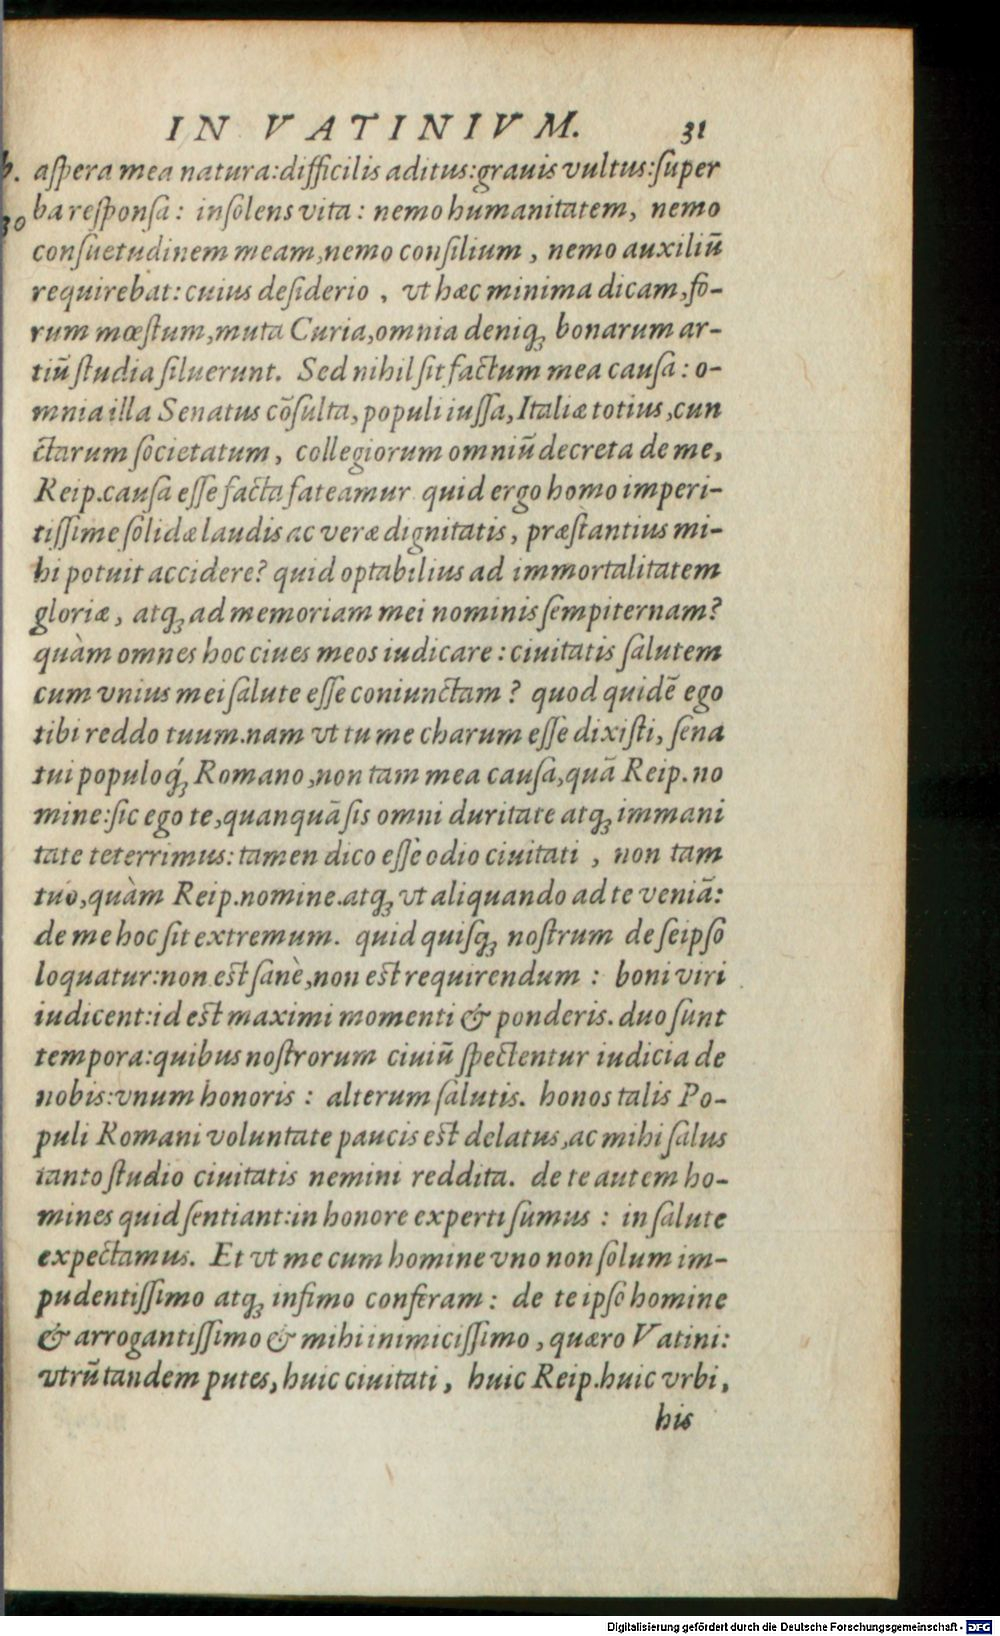 IN VATINIVM. 31
aſpera mea natura:difficilis aditus:grauis vultus:ſuper
ba reſponſa: inſolens vita: nemo humanitatem, nemo
30
conſuetudinem meam,nemo conſilium, nemo auxiliū
requirebat:cuius deſiderio, vt hæc minima dicam,fo-
rum mœſtum,muta Curia,omnia deniqꝫ bonarum ar-
tiū ſtudia ſiluerunt. Sed nihil ſit factum mea cauſa: o-
mnia illa Senatus cōſulta,populi iuſſa,Italiæ totius,cun
ctarum ſocietatum, collegiorum omniū decreta de me,
Reip.cauſa eſſe facta fateamur quid ergo homo imperi-
tiſſime ſolidæ laudis ac veræ dignitatis, præſtantius mi-
hi potuit accidere? quid optabilius ad immortalitatem
gloriæ, atqꝫ ad memoriam mei nominis ſempiternam?
quàm omnes hoc ciues meos iudicare: ciuitatis ſalutem
cum vnius mei ſalute eſſe coniunctam? quod quidē ego
tibi reddo tuum.nam vt tu me charum eſſe dixiſti, ſena
tui populoq́ꝫ Romano,non tam mea cauſa,quā Reip.no
mine:ſic ego te,quanquā ſis omni duritate atqꝫ immani
tate teterrimus: tamen dico eſſe odio ciuitati, non tam
tuo,quàm Reip.nomine.atqꝫ vt aliquando ad te veniā:
de me hoc ſit extremum. quid quiſqꝫ noſtrum de ſeipſo
loquatur:non eſt ſanè,non eſt requirendum: boni viri
iudicent:id eſt maximi momenti & ponderis.duo ſunt
tempora:quibus noſtrorum ciuiū ſpectentur iudicia de
nobis:vnum honoris: alterum ſalutis. honos talis Po-
puli Romani voluntate paucis eſt delatus,ac mihi ſalus
tanto ſtudio ciuitatis nemini reddita. de te autem ho-
mines quid ſentiant:in honore experti ſumus: in ſalute
expectamus. Et vt me cum homine vno non ſolum im-
pudentiſſimo atqꝫ infimo conferam: de te ipſo homine
& arrogantiſſimo & mihi inimiciſſimo, quæro Vatini:
vtrū tandem putes, huic ciuitati, huic Reip.huic vrbi,
his
Digitalisierung gefördert durch die Deutsche Forschungsgemeinschaft - DFG